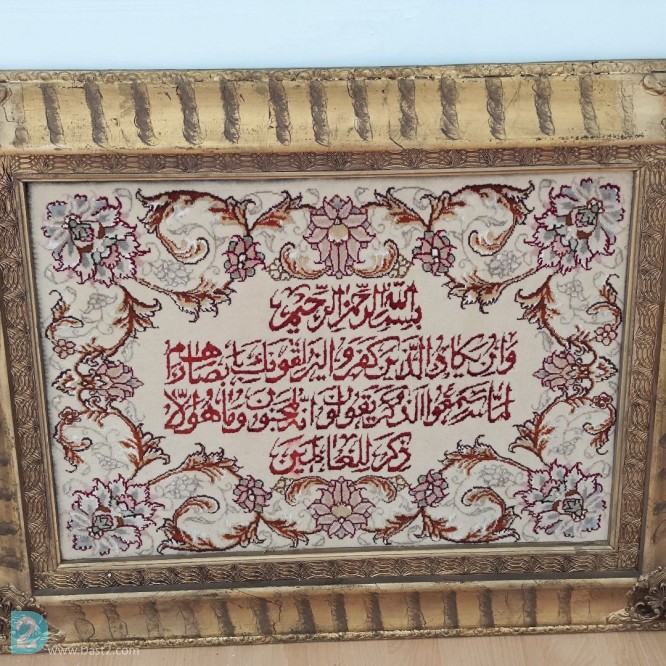 بسم الله الرحمن الرحیم
وان یکاد الذین کفروا لیزلقونک بابصارهم
لما سمعوا الذکر ویقولون انه لمجنون وما هو الا
ذکر للعالمین
2 www.Dast2.com